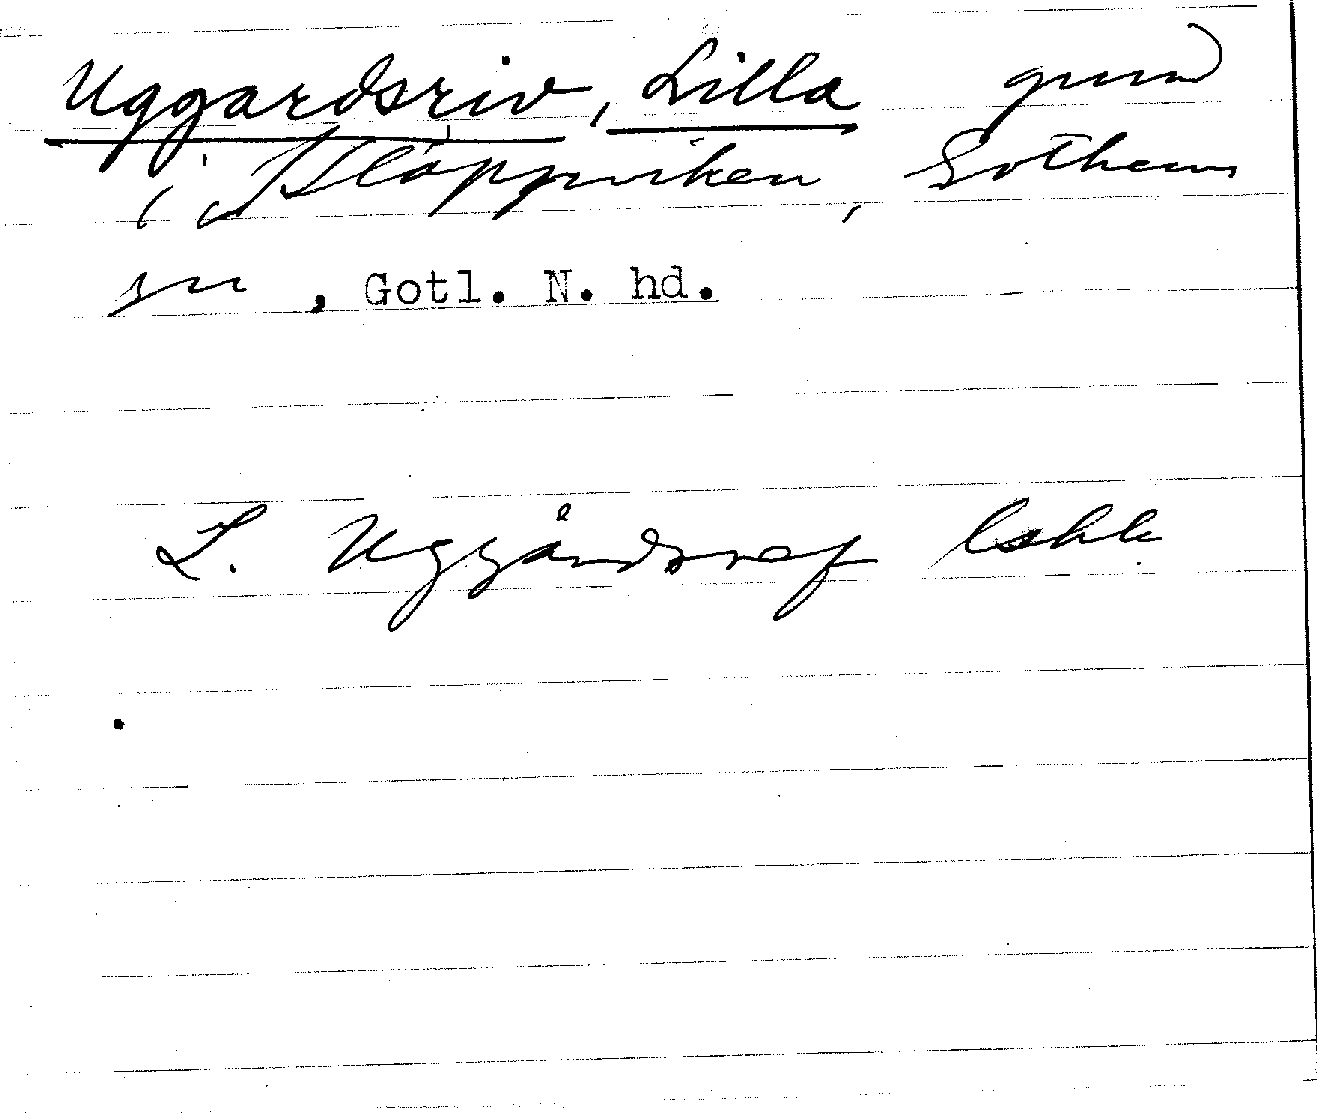 Uggardsriv, Lilla grund
i Kläppviken, Gothems
sn, Gotl. N. hd.
L. Uggårdsref